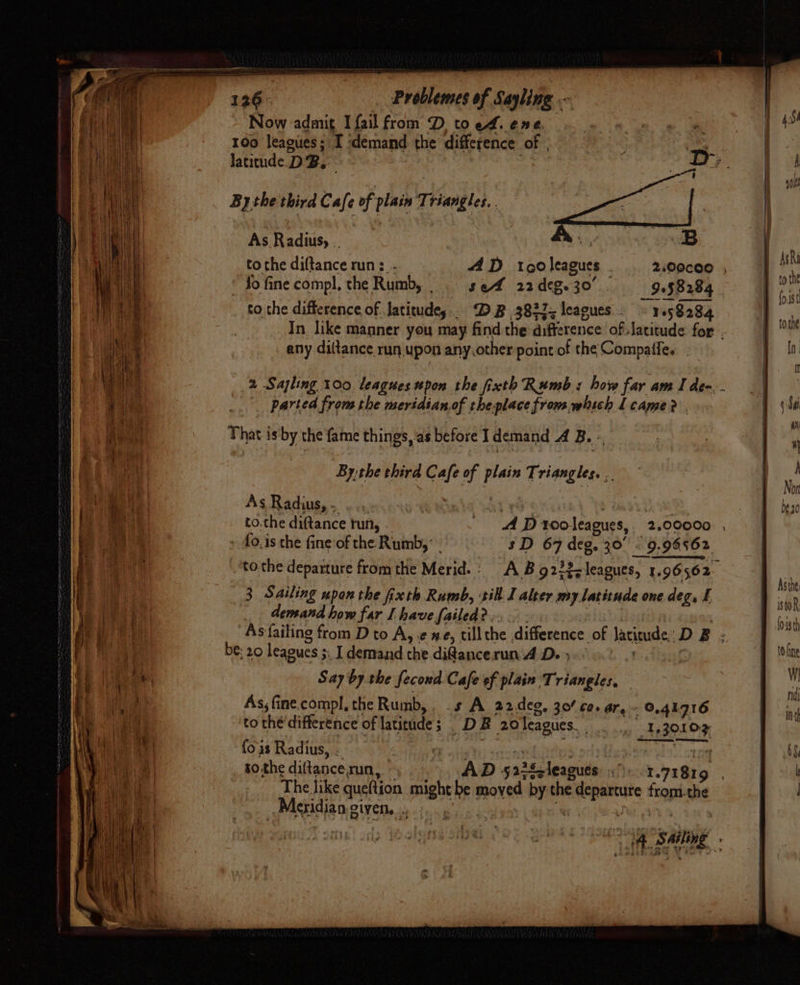 126 Problemes of Sayling
Now admit I ſail from D, to A. ene.
100 leagues; I demand the difference of
latitude D B.
D
By the third Caſe of plain Triangles.
As Radius,
A B
to the diſtance run: A D 100 leagues 2.00000
ſo ſine compl. the Rumb, s A 22 deg. 30′ 9.58284
to the difference of latitude, D B leagues 1.58284
In like manner you may find the difference of latitude for
any diſtance run upon any other point of the Compaſſe.
2 Sayling 100 leagues upon the ſixth Rumb: how far am I de-
parted from the meridian of the place from which I came?
That is by the ſame things, as before I demand A B.
By the third Caſe of plain Triangles.
As Radius,
to the diſtance run, A D 100 leagues, 2.00000
ſo is the ſine of the Rumb, s D 67 deg. 30′ 9.96562
to the departure from the Merid. A B leagues, 1.96562
3 Sailing upon the ſixth Rumb, till I alter my latitude one deg, I
demand how far I have ſailed?
As ſailing from D to A, ene, till the difference of latitude D B
be 20 leagues; I demand the diſtance run A D.
Say by the ſecond Caſe of plain Triangles,
As, ſine compl. the Rumb, s A 22 deg. 30′ co. ar. 0.41716
to the difference of latitude; D B 20 leagues. 1.30103
ſo is Radius,
to the diſtance run, A D leagues 1.71819
The like queſtion might be moved by the departure from the
Meridian given.
4 Sailing